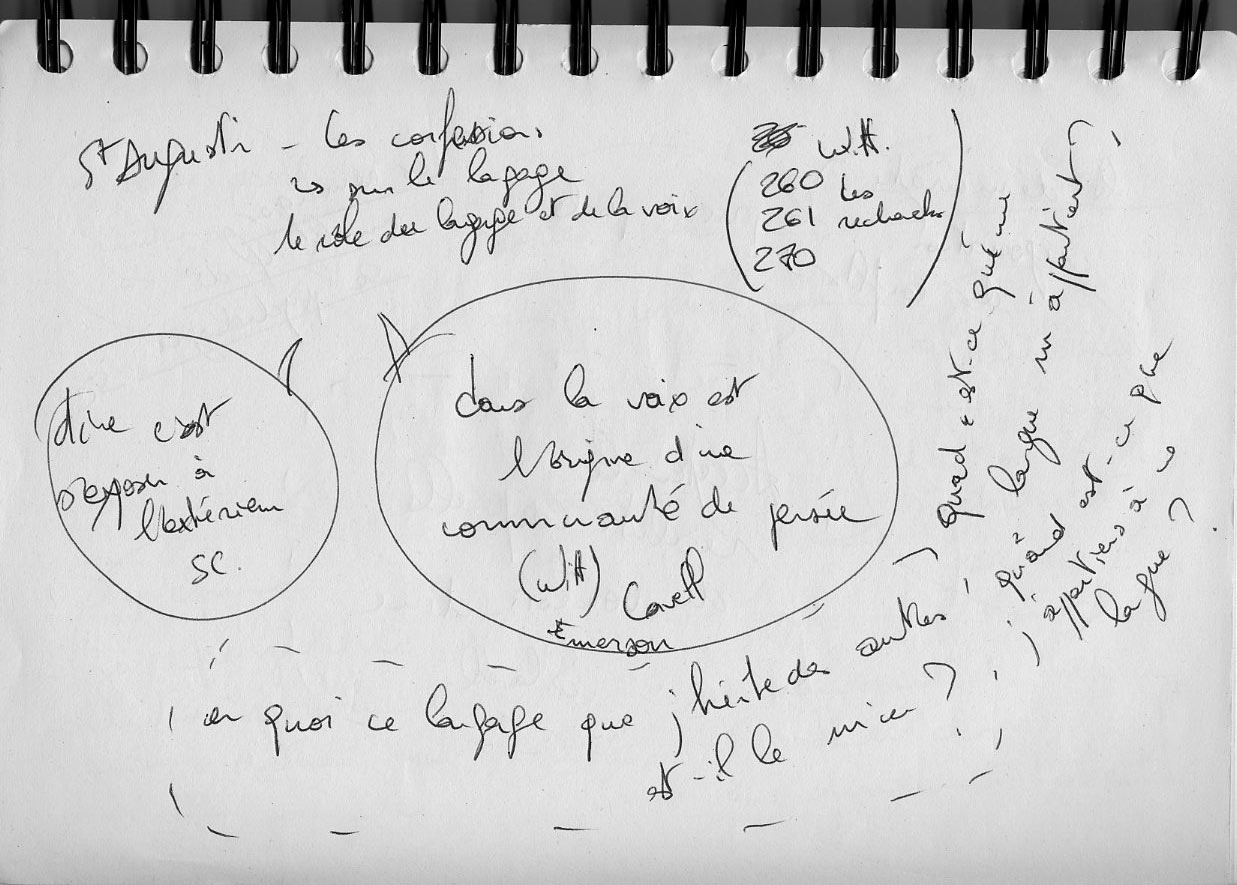 St Augustin - Les confessions
sur le langage
le rôle du langage et de la voix
Witt.
260 Les
261 recherches
270
dire c'est
s'exposer à
l'extérieur
SC.
dans la voix est
l'origine d'une
communauté de pensée
(Witt) Cavell
Emerson
en quoi ce langage que j'hérite des autres
est-il le mien ?
Quand est-ce qu'une
langue m'appartient ?
quand est-ce que
j'appartiens à une
langue ?